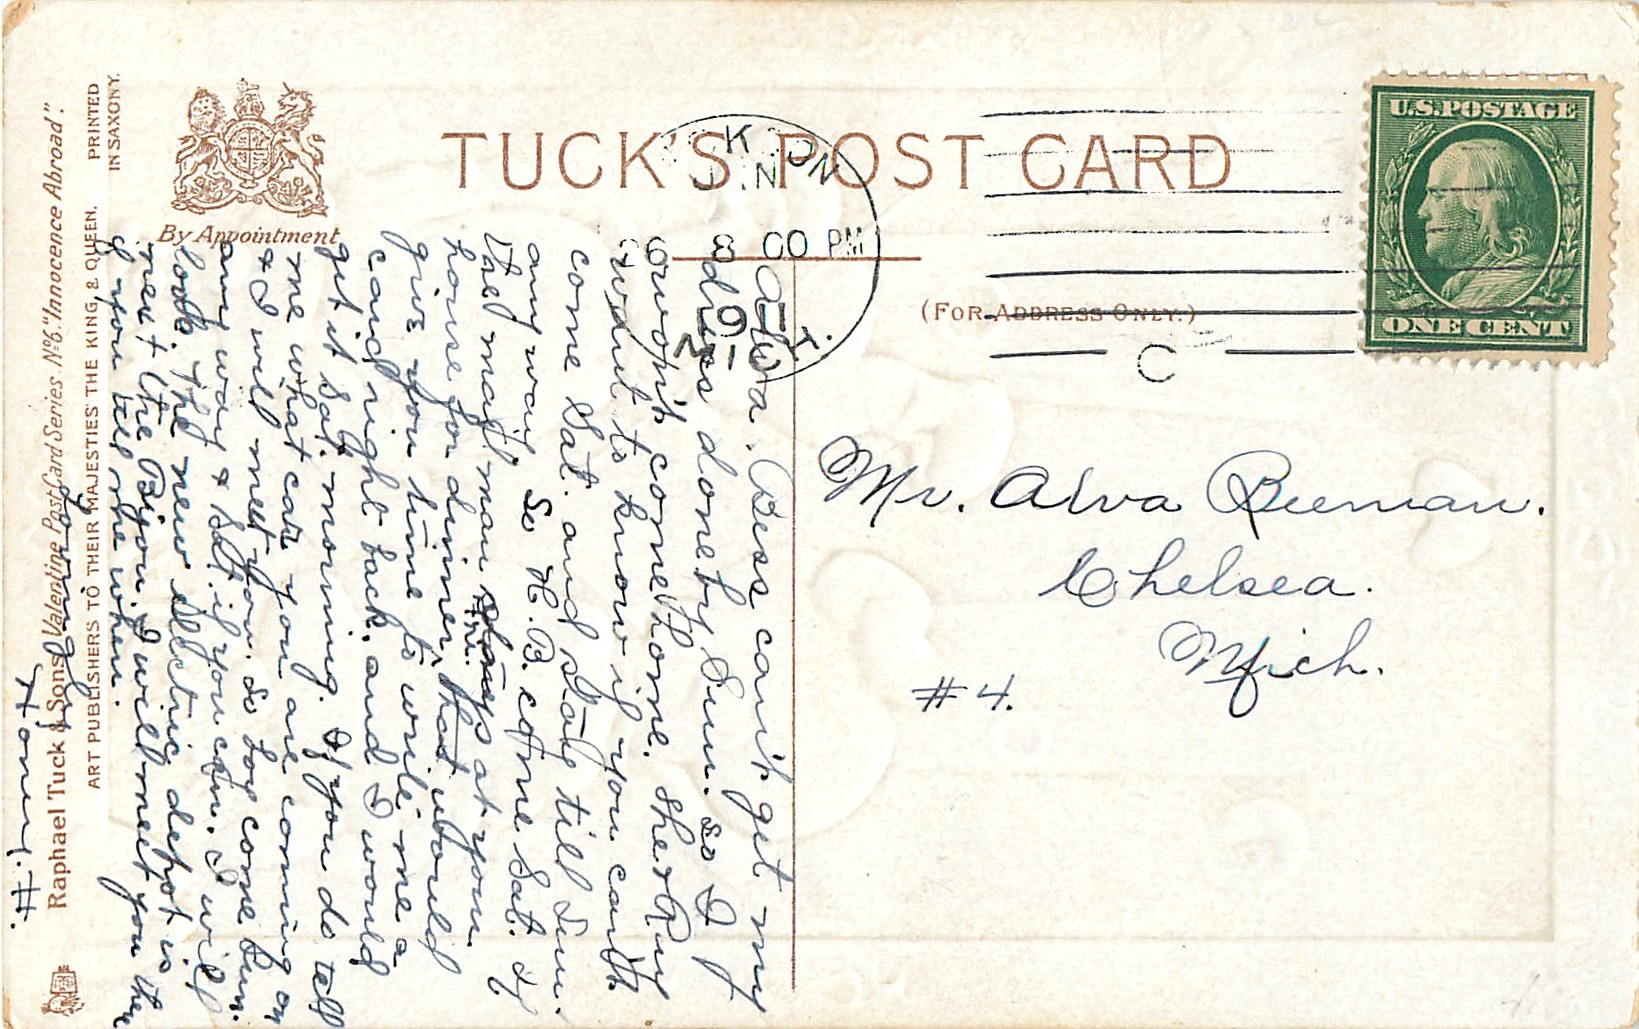 TUCK'S POST CARD
By Appointment
(FOR ADDRESS ONLY.)
U.S. POSTAGE
ONE CENT
J CK ON
J N
8 00 PM
191
MICH.
C
Mr. Alva Beeman.
Chelsea.
Mich.
#4.
Alva. Bess can't get my
dress done by Sun. so I
won't come home. She & Ray
want to know if you can't
come Sat. and stay till Sun.
any way. So H. B. come Sat. If
the mail man stops at your
house for dinner, that would
give you time to write me a
card right back. and I would
get it Sat. morning. If you do tell
me what car you are coming on
& I will meet you. So boy come Sun.
any way & Sat if you can. I will
look. The new electric depot is
next the Bijou. I will meet you there
if you tell me when.
Lovingly
Raphael Tuck & Sons' Valentine Post Card Series Nº 6. "Innocence Abroad".
ART PUBLISHERS TO THEIR MAJESTIES THE KING, & QUEEN.
PRINTED
IN SAXONY.